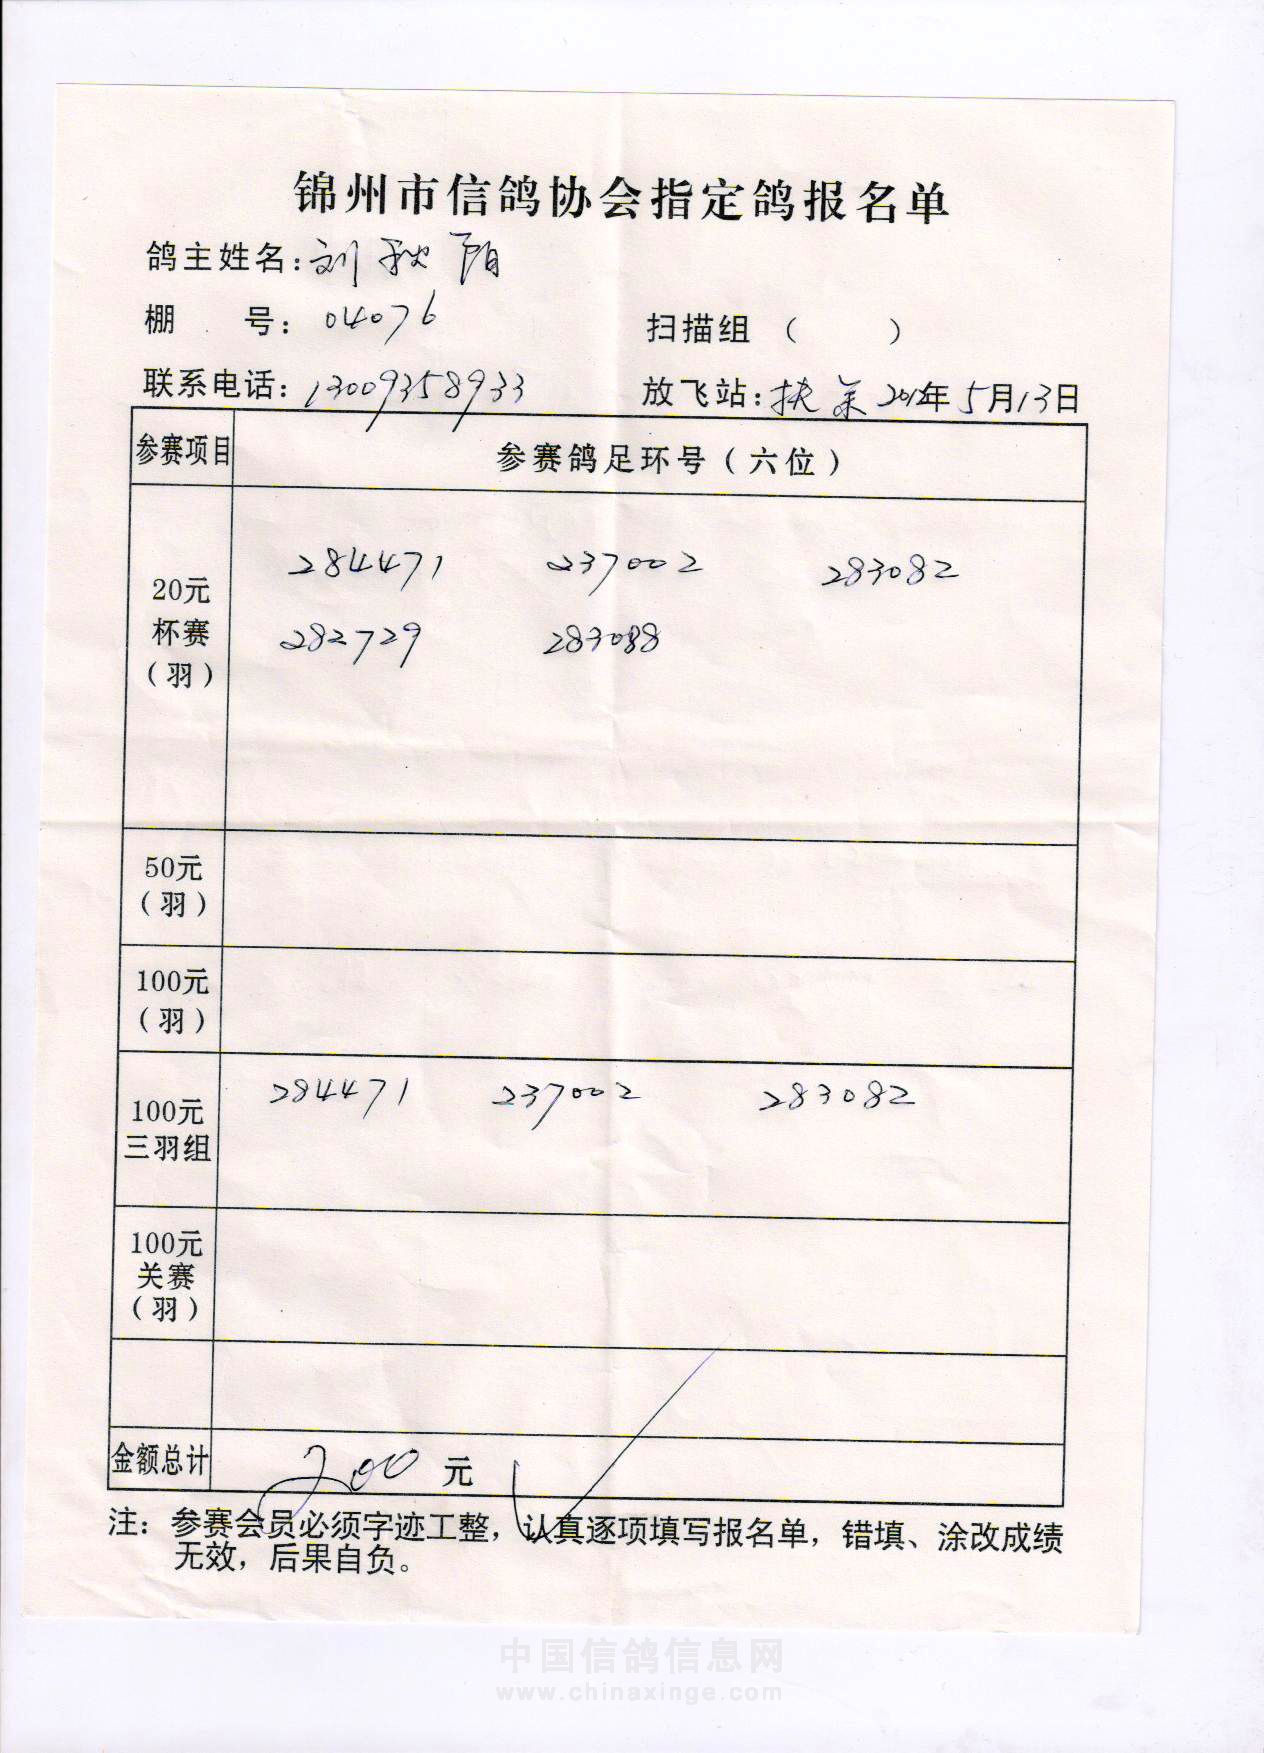 锦州市信鸽协会指定鸽报名单
鸽主姓名：刘秋阳
棚 号：04076 扫描组（ ）
联系电话：13009358933 放飞站：扶余2012年5月13日
参赛项目 参赛鸽足环号（六位）
20元
杯赛
（羽）
284471 237002 283082
282729 283088
50元
（羽）
100元
（羽）
100元
三羽组
284471 237002 283082
100元
关赛
（羽）
金额总计 200 元
注：参赛会员必须字迹工整，认真逐项填写报名单，错填、涂改成绩
无效，后果自负。
中国信鸽信息网
www.chinaxinge.com